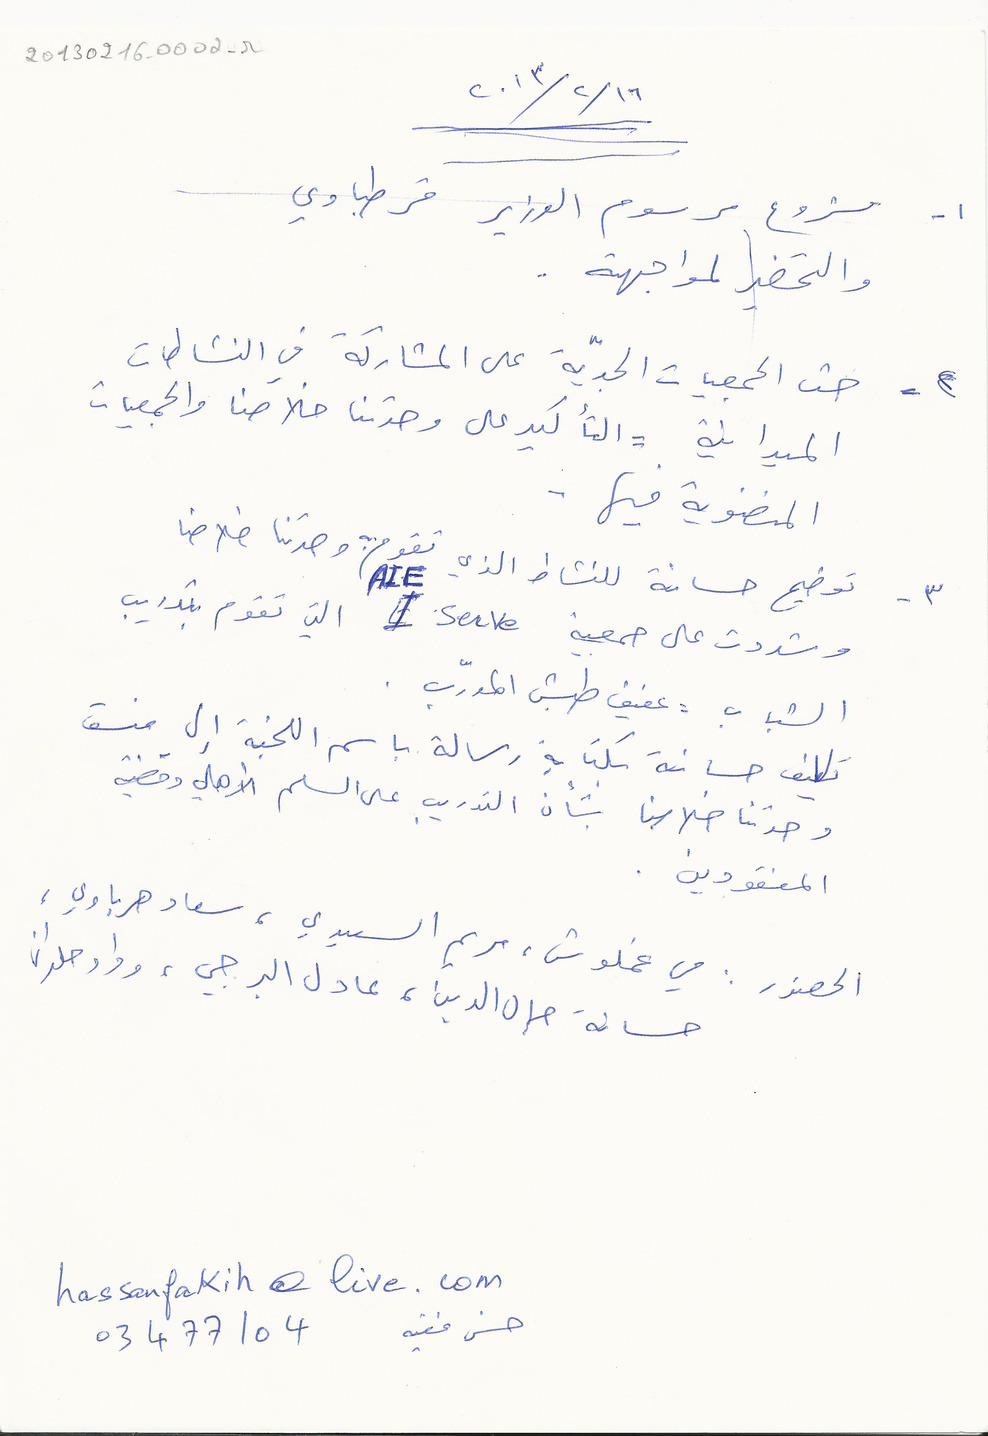 20130216_0002_r
٢٠١٣/٢/١٦
١- مشروع مرسوم الوزير قرطباوي
والتحضير لمواجهته .
٢- حث الجمعيات الجدّية على المشاركة في النشاطات
الميدانية = التأكيد على وحدتنا خلاصنا والجمعيات
المنضوية فيها -
٣- توضيح حسانة للنشاط الذي تقوم به وحدتنا خلاصنا
وشددت على جمعية AIE I Serve التي تقوم بتدريب
الشباب = عفيف طبش المدرّب .
تكليف حسانة بكتابة رسالة باسم اللجنة إلى منسق
وحدتنا خلاصنا بشأن التدريب على السلم الأهلي وقضية
المفقودين .
الحضور : مي عملوش ، مريم السعيدي ، سعاد هرباوي ،
حسانة جمال الدين ، عادل البرجي ، وداد حلواني
hassanfakih@live.com
03477104 حسن فقيه